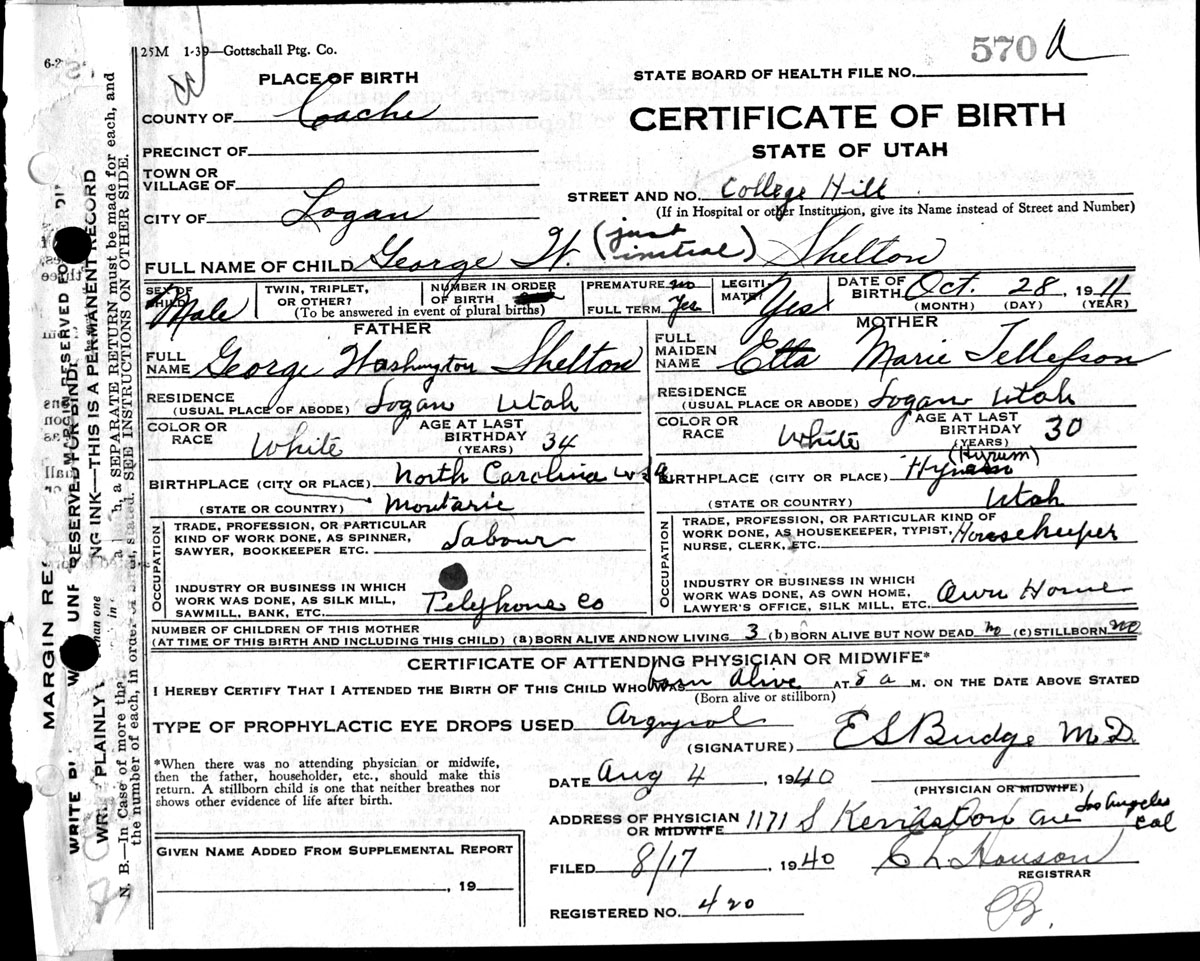 25M 1-39—Gottschall Ptg. Co.
570 A
STATE BOARD OF HEALTH FILE NO.
PLACE OF BIRTH
COUNTY OF Cache
CERTIFICATE OF BIRTH
PRECINCT OF
STATE OF UTAH
TOWN OR
VILLAGE OF
STREET AND NO. College Hill
CITY OF Logan
(If in Hospital or other Institution, give its Name instead of Street and Number)
FULL NAME OF CHILD George W. (just initial) Shelton
SEX OF CHILD Male
TWIN, TRIPLET, OR OTHER?
NUMBER IN ORDER OF BIRTH
(To be answered in event of plural births)
PREMATURE no
FULL TERM Yes
LEGITIMATE? Yes
DATE OF BIRTH Oct. 28, 1911
(MONTH) (DAY) (YEAR)
FATHER
FULL NAME George Washington Shelton
RESIDENCE (USUAL PLACE OF ABODE) Logan Utah
COLOR OR RACE White
AGE AT LAST BIRTHDAY (YEARS) 34
BIRTHPLACE (CITY OR PLACE) North Carolina USA
(STATE OR COUNTRY)
OCCUPATION
TRADE, PROFESSION, OR PARTICULAR
KIND OF WORK DONE, AS SPINNER,
SAWYER, BOOKKEEPER ETC. Labour
INDUSTRY OR BUSINESS IN WHICH
WORK WAS DONE, AS SILK MILL,
SAWMILL, BANK, ETC. Telephone Co
MOTHER
FULL MAIDEN NAME Etta Marie Tellefson
RESIDENCE (USUAL PLACE OR ABODE) Logan Utah
COLOR OR RACE White
AGE AT LAST BIRTHDAY (YEARS) 30
(Hyrum)
BIRTHPLACE (CITY OR PLACE)
(STATE OR COUNTRY) Utah
OCCUPATION
TRADE, PROFESSION, OR PARTICULAR KIND OF
WORK DONE, AS HOUSEKEEPER, TYPIST,
NURSE, CLERK, ETC. Housekeeper
INDUSTRY OR BUSINESS IN WHICH
WORK WAS DONE, AS OWN HOME,
LAWYER'S OFFICE, SILK MILL, ETC. Own Home
NUMBER OF CHILDREN OF THIS MOTHER
(AT TIME OF THIS BIRTH AND INCLUDING THIS CHILD) (a) BORN ALIVE AND NOW LIVING 3 (b) BORN ALIVE BUT NOW DEAD no (c) STILLBORN no
CERTIFICATE OF ATTENDING PHYSICIAN OR MIDWIFE*
I HEREBY CERTIFY THAT I ATTENDED THE BIRTH OF THIS CHILD WHO WAS born Alive AT 8 a M. ON THE DATE ABOVE STATED
(Born alive or stillborn)
TYPE OF PROPHYLACTIC EYE DROPS USED Argyrol
(SIGNATURE) E S Budge M.D.
*When there was no attending physician or midwife,
then the father, householder, etc., should make this
return. A stillborn child is one that neither breathes nor
shows other evidence of life after birth.
DATE Aug 4, 1940
(PHYSICIAN OR MIDWIFE)
ADDRESS OF PHYSICIAN
OR MIDWIFE 1171 S Keniston ave Los Angeles Cal
GIVEN NAME ADDED FROM SUPPLEMENTAL REPORT
, 19
FILED 8/17, 1940
REGISTRAR
REGISTERED NO. 420
MARGIN RES
RESERVED FOR BINDI
NG INK—THIS IS A PERMANENT RECORD
WRITE PLAINLY
N. B.—In Case of more tha
h, a SEPARATE RETURN must be made for each, and
the number of each, in order of birth, stated. SEE INSTRUCTIONS ON OTHER SIDE.